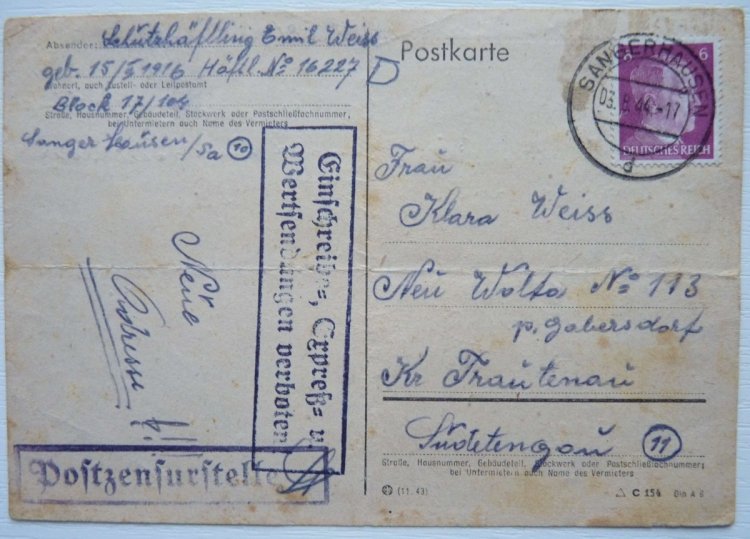 Absender: Schutzhäftling Emil Weiss
geb. 15/I 1916 Häftl. No 16227 D
Wohnort, auch Zustell- oder Leitpostamt
Block 17/104
Straße, Hausnummer, Gebäudeteil, Stockwerk oder Postschließfachnummer,
bei Untermietern auch Name des Vermieters
Sangerhausen/Sa 10
Neue
Adresse !!
Einschreibe-, Expreß- u
Wertsendungen verboten
Postzensurstelle
Postkarte
SANGERHAUSEN
03. 44.-17
d
6
DEUTSCHES REICH
Frau
Klara Weiss
Neu Wolta No 113
p. Gabersdorf
Kr Trautenau
Sudetengau 11
Straße, Hausnummer, Gebäudeteil, Stockwerk oder Postschließfachnummer;
bei Untermietern auch Name des Vermieters
(11. 43)
C 154 Din A 6